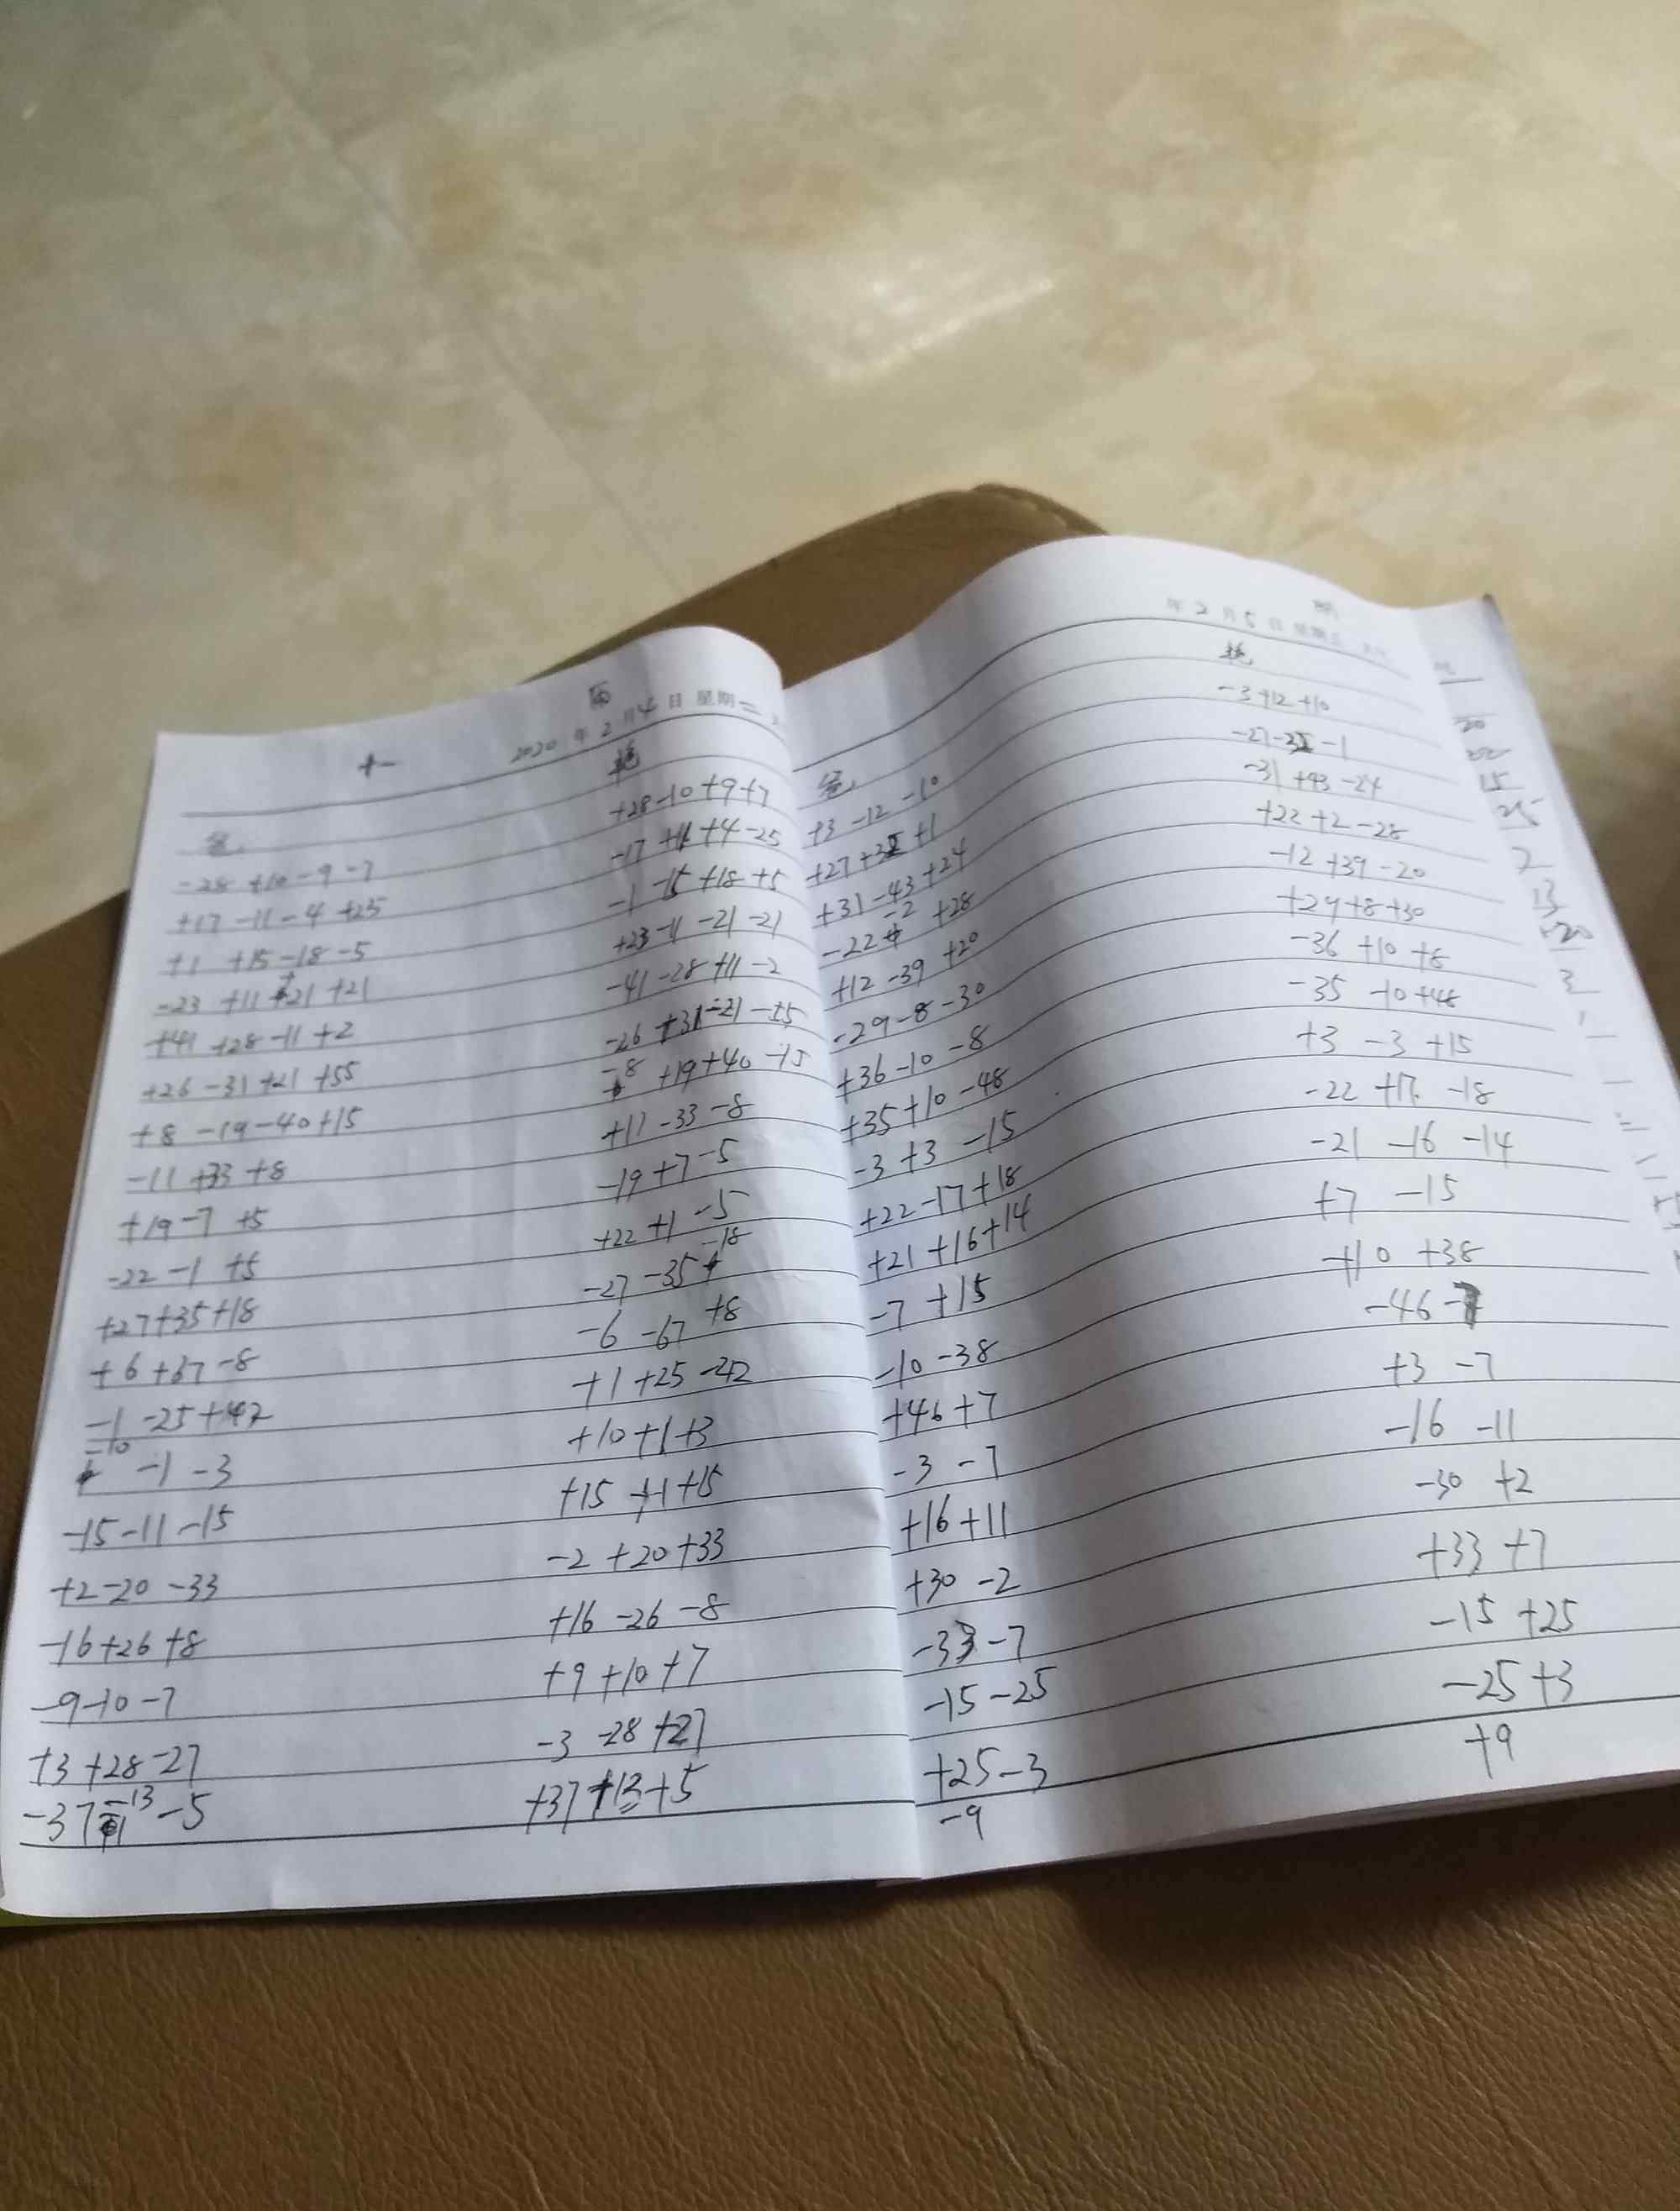 十一
2020 年 2 月 4 日 星期二
-28 +10 -9 -7
+17 -11 -4 +25
+1 +15 -18 -5
-23 +11 +21 +21
+41 +28 -11 +2
+26 -31 +21 +55
+8 -19 -40 +15
-11 +33 +8
+19 -7 +5
-22 -1 +5
+27 +35 +18
+6 +67 -8
-1 -25 +42
-10 -1 -3
-15 -11 -15
+2 -20 -33
-16 +26 +8
-9 -10 -7
+3 +28 -27
-37 -13 -5
+28 -10 +9 +7
-17 +11 +4 -25
-1 -15 +18 +5
+23 -11 -21 -21
-41 -28 +11 -2
-26 +31 -21 -55
-8 +19 +40 -15
+11 -33 -8
-19 +7 -5
+22 +1 -5
-27 -35 -18
-6 -67 +8
+1 +25 -42
+10 +1 +3
+15 +11 +15
-2 +20 +33
+16 -26 -8
+9 +10 +7
-3 -28 +27
+37 +13 +5
年 2 月 5 日 星期三
+3 -12 -10
+27 +1
+31 -43 +24
-22 -2 +28
+12 -39 +20
-29 -8 -30
+36 -10 -8
+35 +10 -48
-3 +3 -15
+22 -17 +18
+21 +16 +14
-7 +15
-10 -38
+46 +7
-3 -7
+16 +11
+30 -2
-33 -7
-15 -25
+25 -3
-9
-3 +12 +10
-27 -1
-31 +43 -24
+22 +2 -28
-12 +39 -20
+29 +8 +30
-36 +10 +8
-35 -10 +48
+3 -3 +15
-22 +17 -18
-21 -16 -14
+7 -15
+10 +38
-46 -7
+3 -7
-16 -11
-30 +2
+33 +7
-15 +25
-25 +3
+9
20
15
25